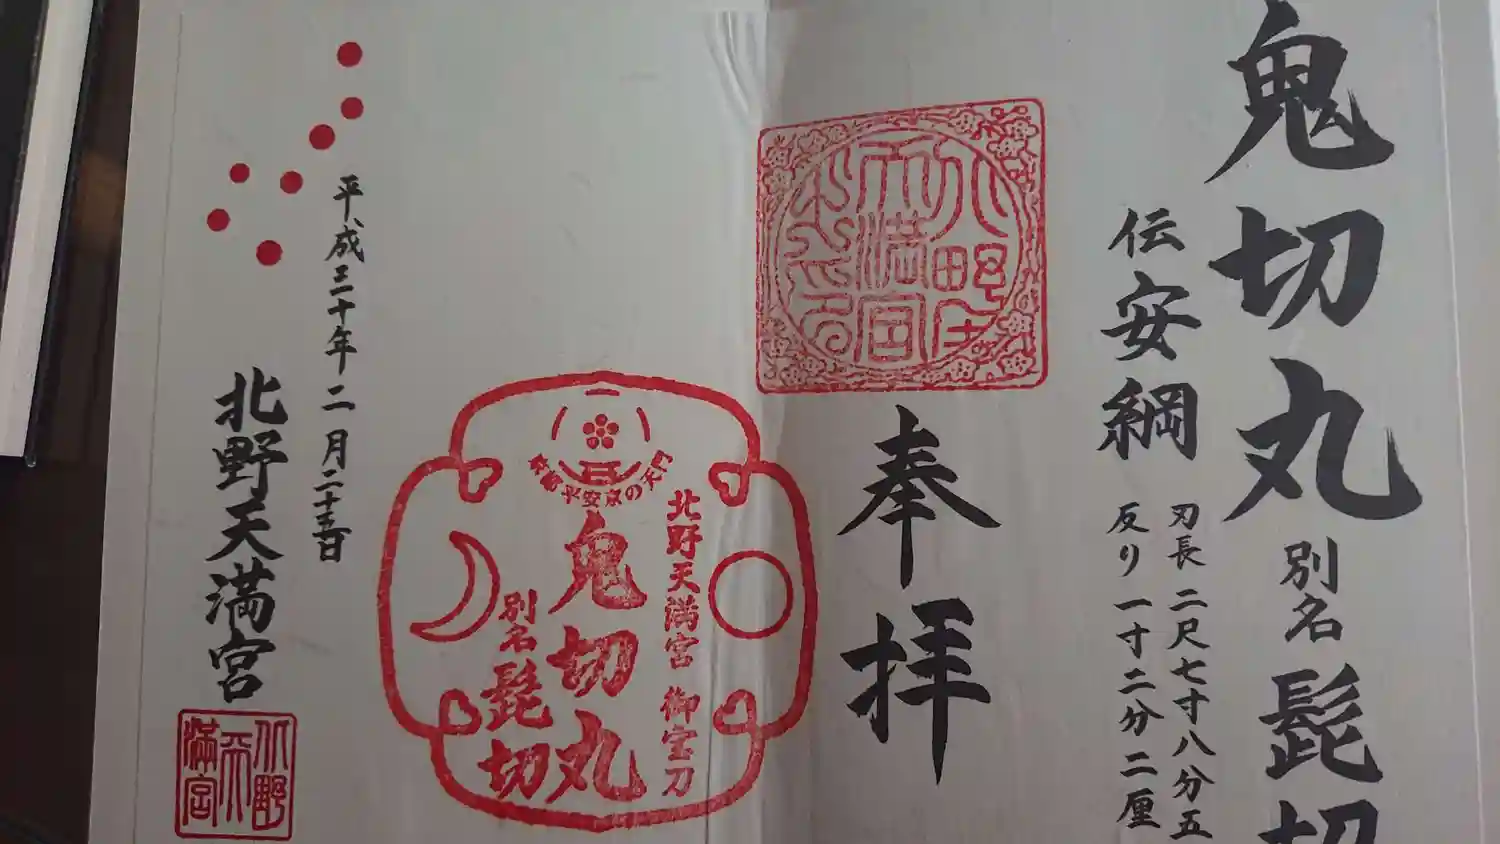 鬼切丸 別名 髭切
伝 安綱
刃長 二尺七寸八分五
反り 一寸二分二厘
奉拝
北野天満宮 御宝刀
鬼切丸
別名 髭切
平安京の天門
平成三十年二月二十五日
北野天満宮
北野
天
満宮